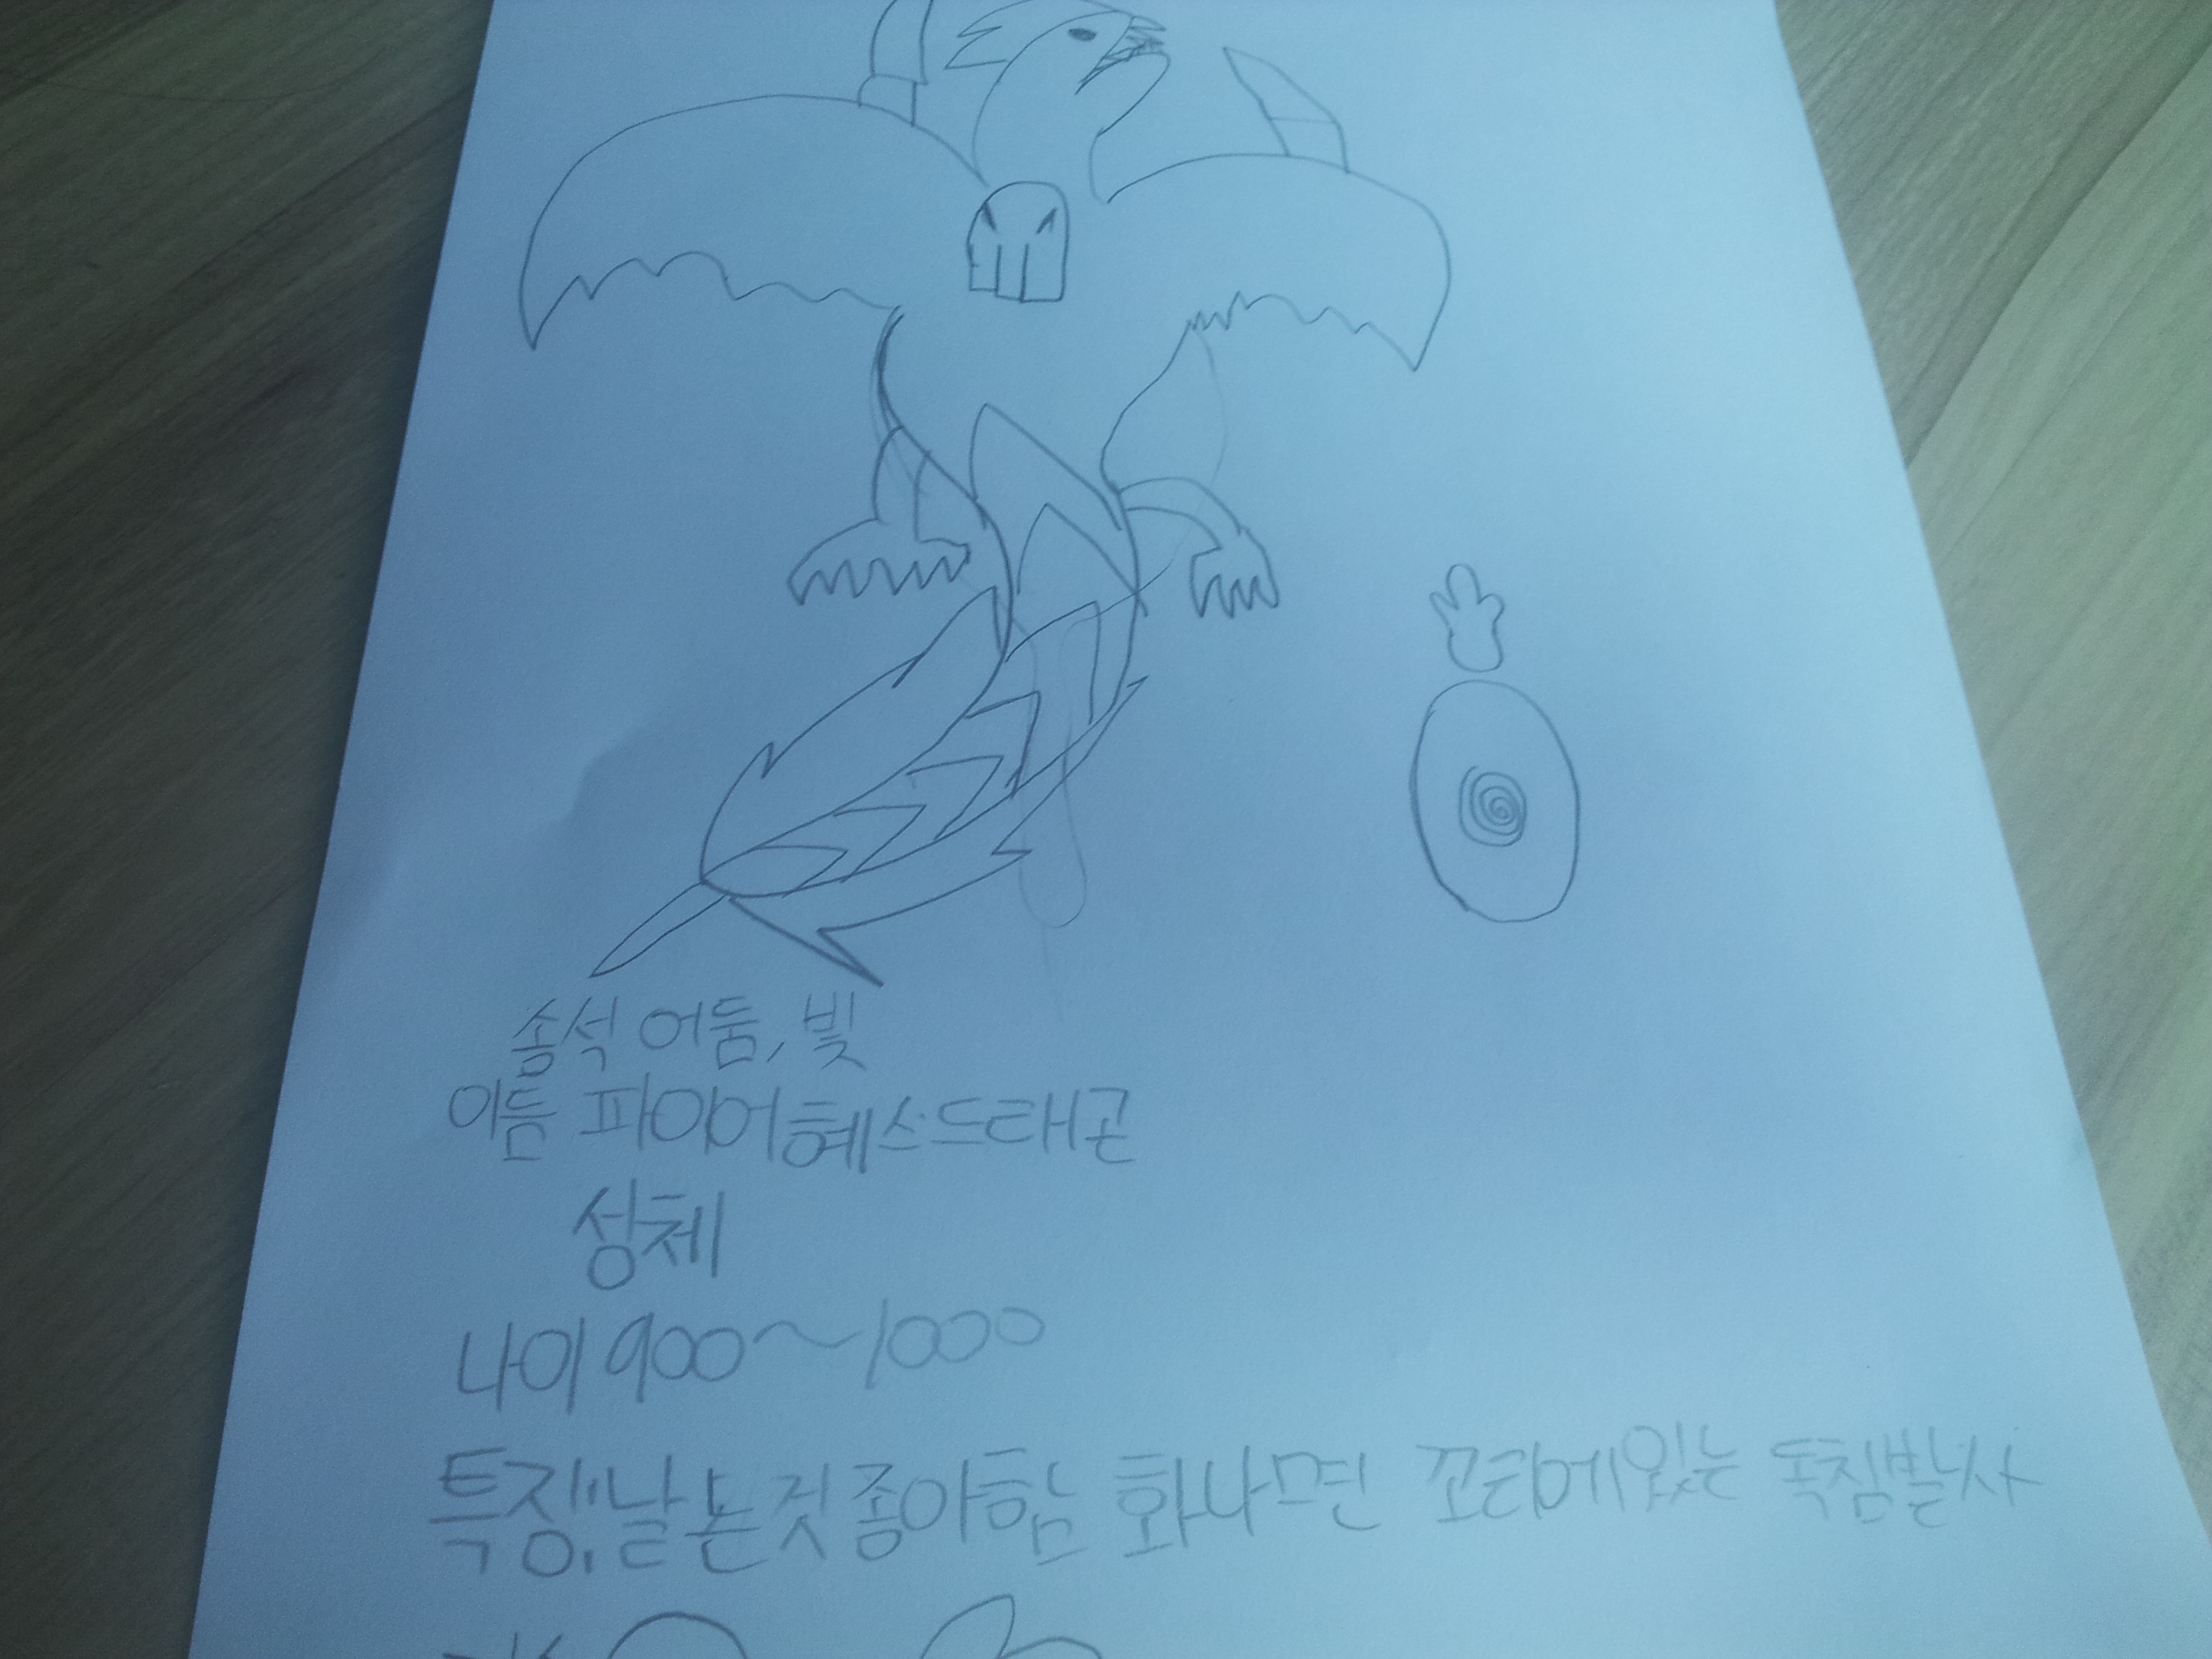 송석 어둠, 빛
이듬 파이어헤스드래곤
성체
나이 900~1000
특징: 날 는것 좋아함 화나면 꼬리에있는 독침발사